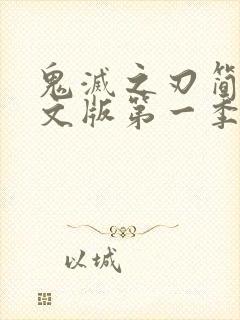 鬼滅之刃简
文版第一季
以城